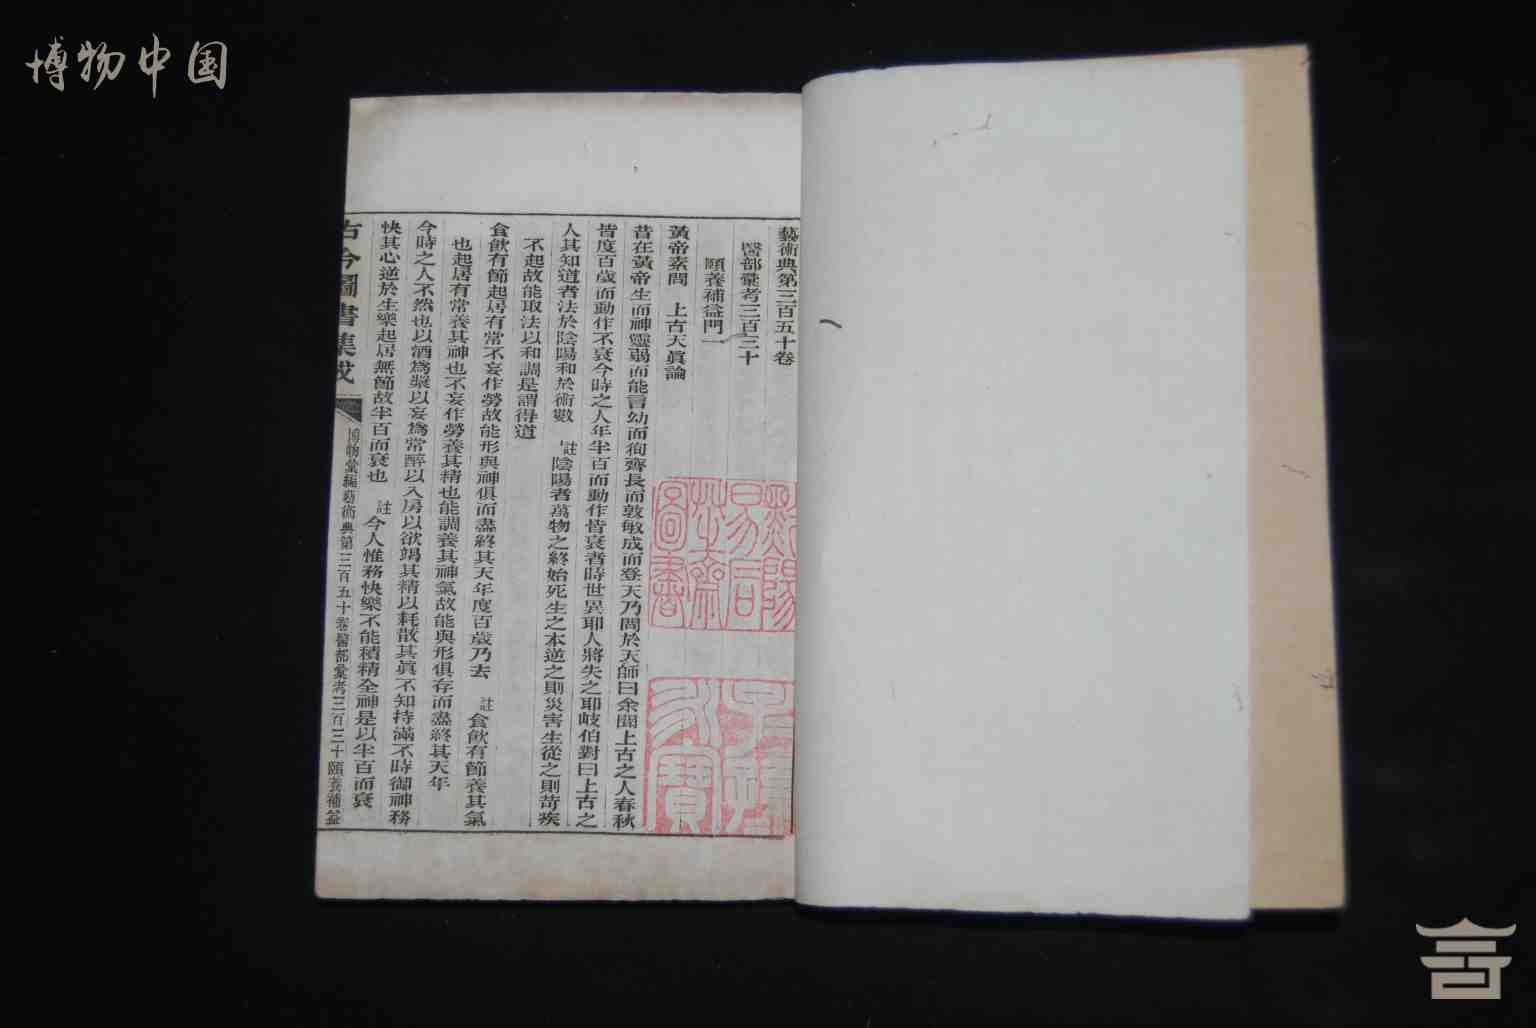 博物中国
藝術典第三百五十卷
醫部彙考三百三十
頤養補益門一
黃帝素問　上古天眞論
昔在黃帝生而神靈弱而能言幼而徇齊長而敦敏成而登天乃問於天師曰余聞上古之人春秋
皆度百歲而動作不衰今時之人年半百而動作皆衰者時世異耶人將失之耶岐伯對曰上古之
人其知道者法於陰陽和於術數　註陰陽者萬物之終始死生之本逆之則災害生從之則苛疾
不起故能取法以和調是謂得道
食飮有節起居有常不妄作勞故能形與神俱而盡終其天年度百歲乃去　註食飮有節養其氣
也起居有常養其神也不妄作勞養其精也能調養其神氣故能與形俱存而盡終其天年
今時之人不然也以酒爲漿以妄爲常醉以入房以欲竭其精以耗散其眞不知持滿不時御神務
快其心逆於生樂起居無節故半百而衰也　註今人惟務快樂不能積精全神是以半百而衰
古今圖書集成　博物彙編藝術典第三百五十卷醫部彙考三百三十頤養補益
圖書